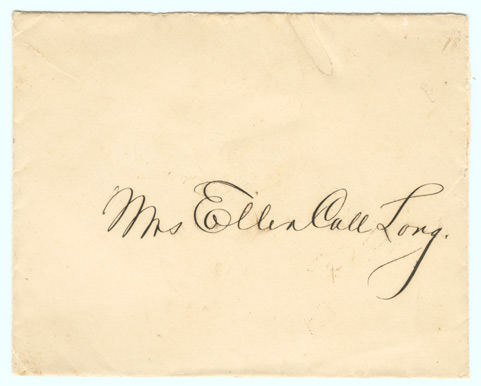 Mrs Ellen Call Long.